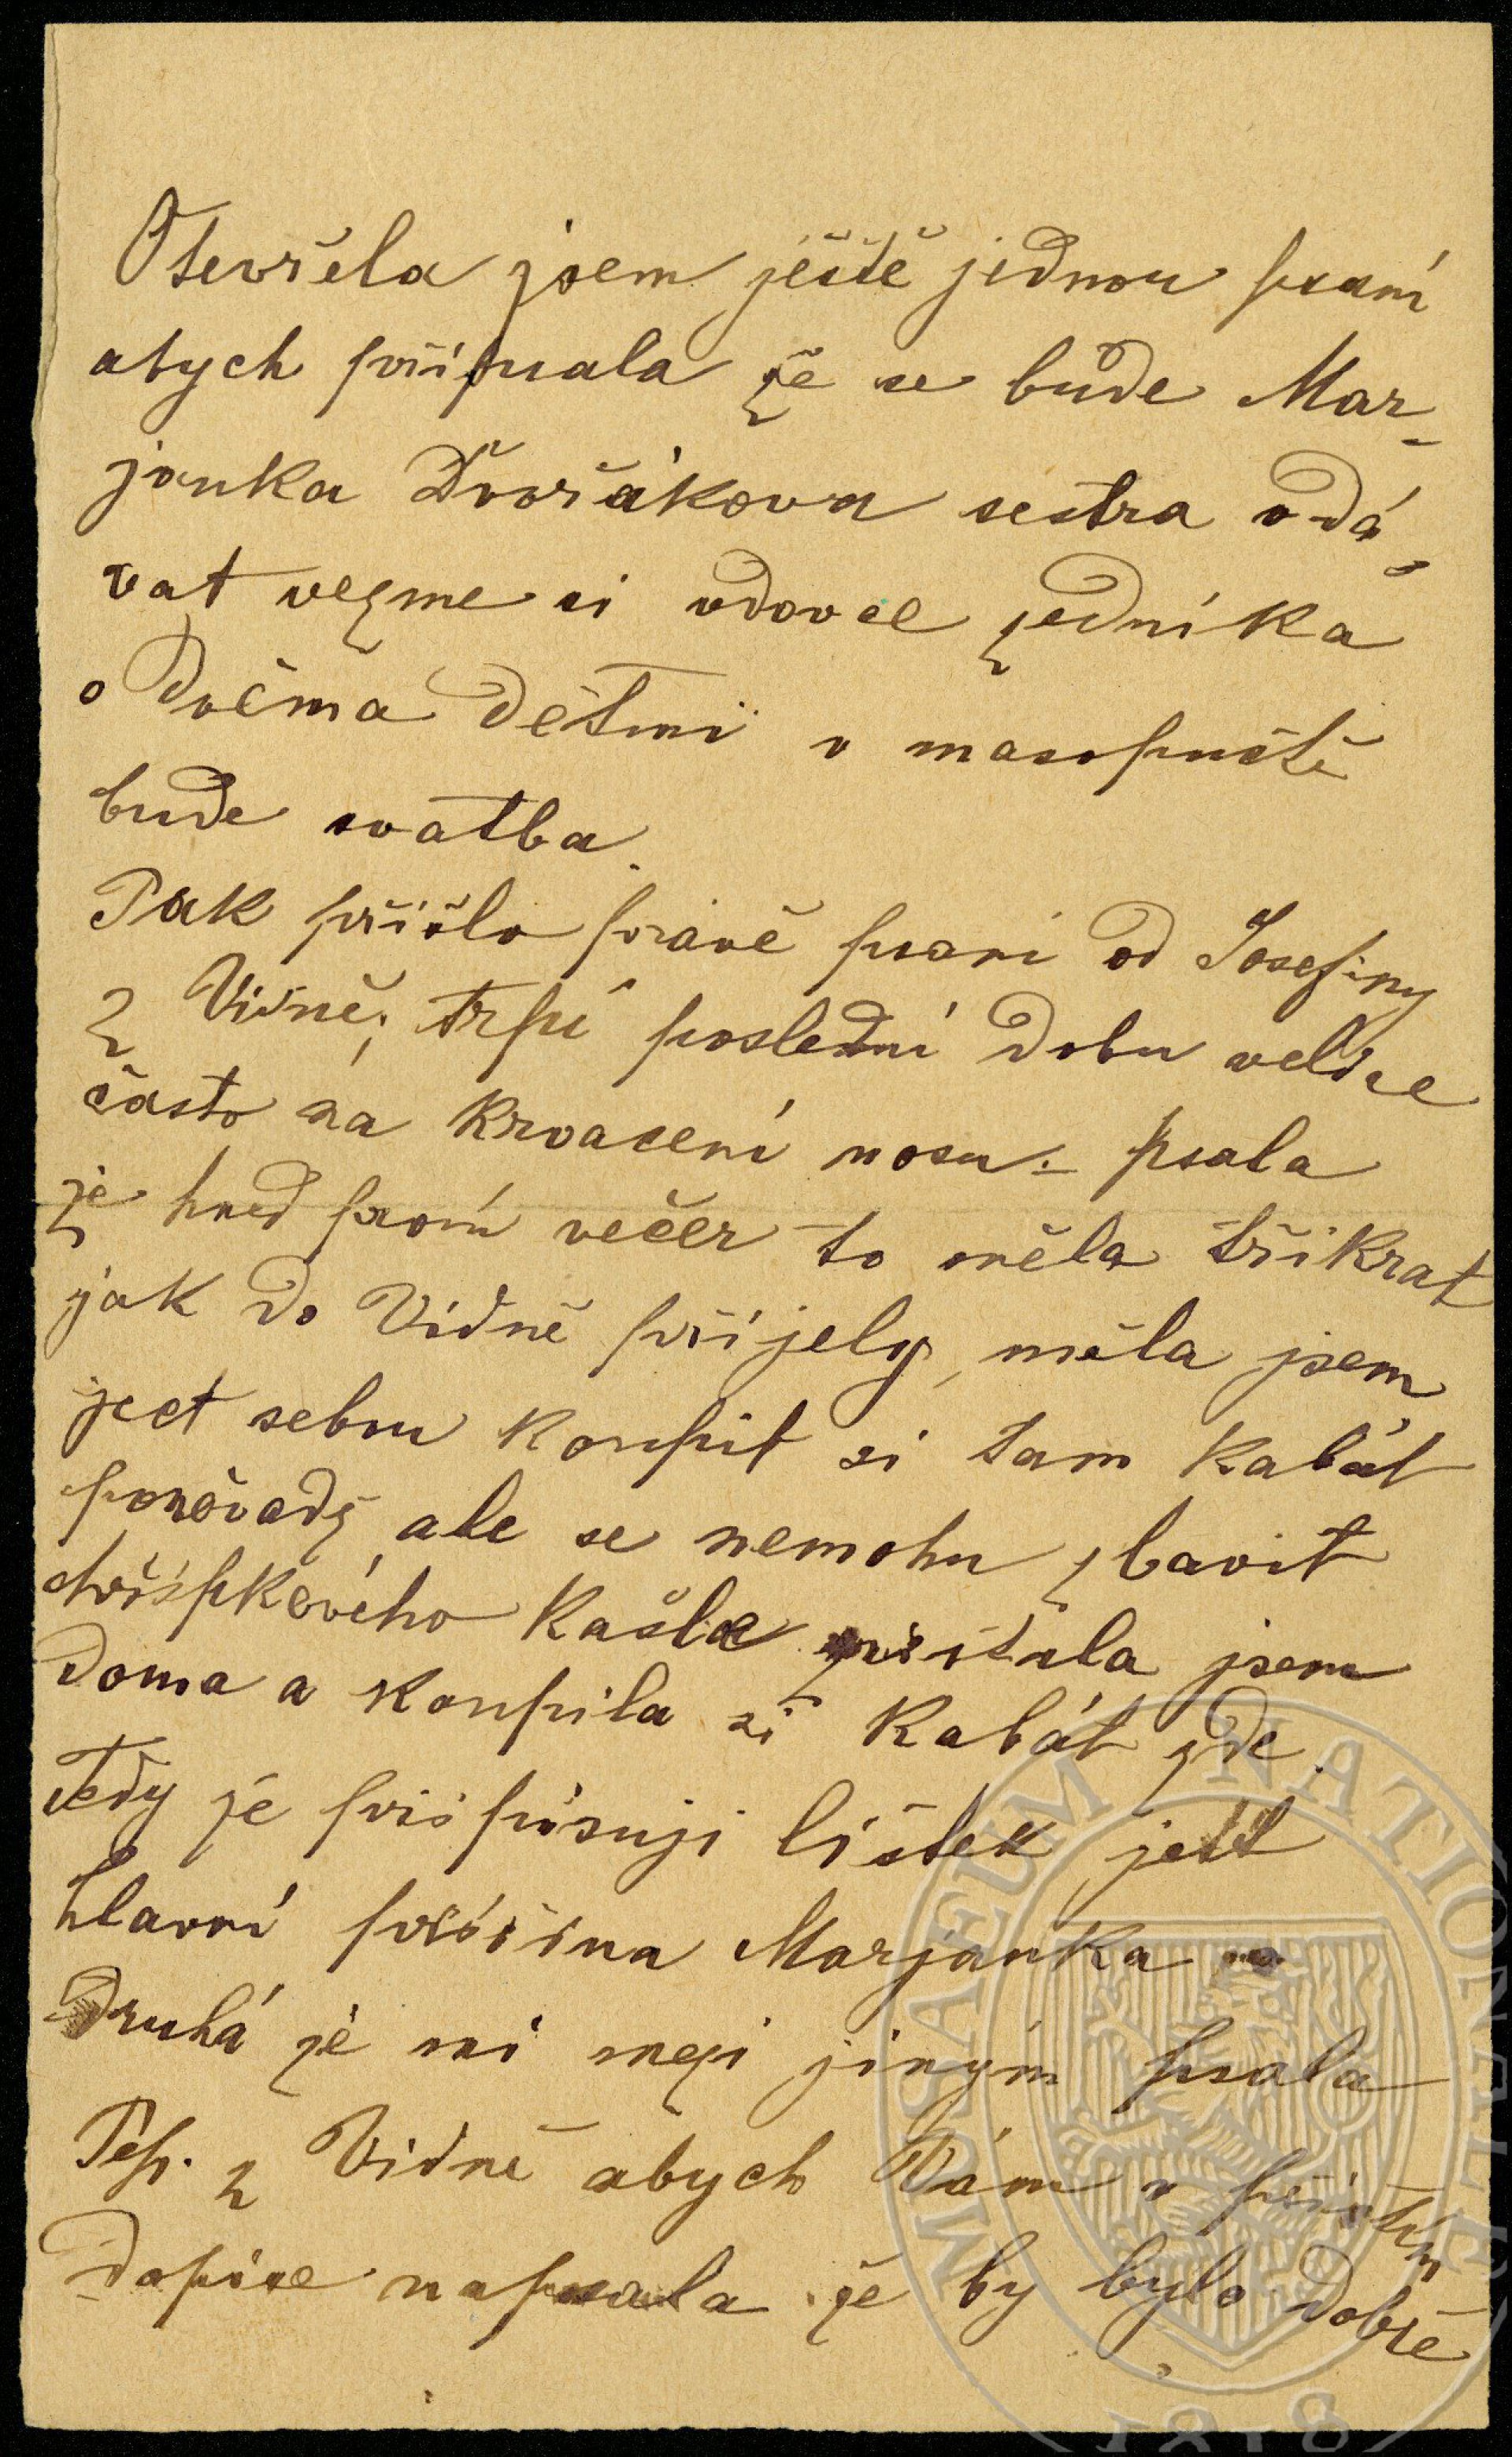 Otevřela jsem ještě jednou psaní
abych připsala že se bude Mar-
janka Dvořákova sestra vdá-
vat vezme si vdovce zedníka
s dvěma dětmi v masopustě
bude svatba.
Pak přišlo právě psani od Josefiny
z Vídně, trpí poslední dobu velice
často na krvaceni nosu. – psala
že hned první večer to měla třikrat
jak do Vídně přijely, měla jsem
ject sebou koupit si tam kabát
poněvadž ale se nemohu zbavit
chřipkového kašle zůstala jsem
doma a koupila si kabát zde.
Tedy že připisuji lístek jest
hlavní příčina Marjanka
Druhá že mi mezi jiným psala
Pep. z Vídně abych Vám v příštím
dopise napsala že by bylo dobře
MUSAEUM NATIONALE
1818